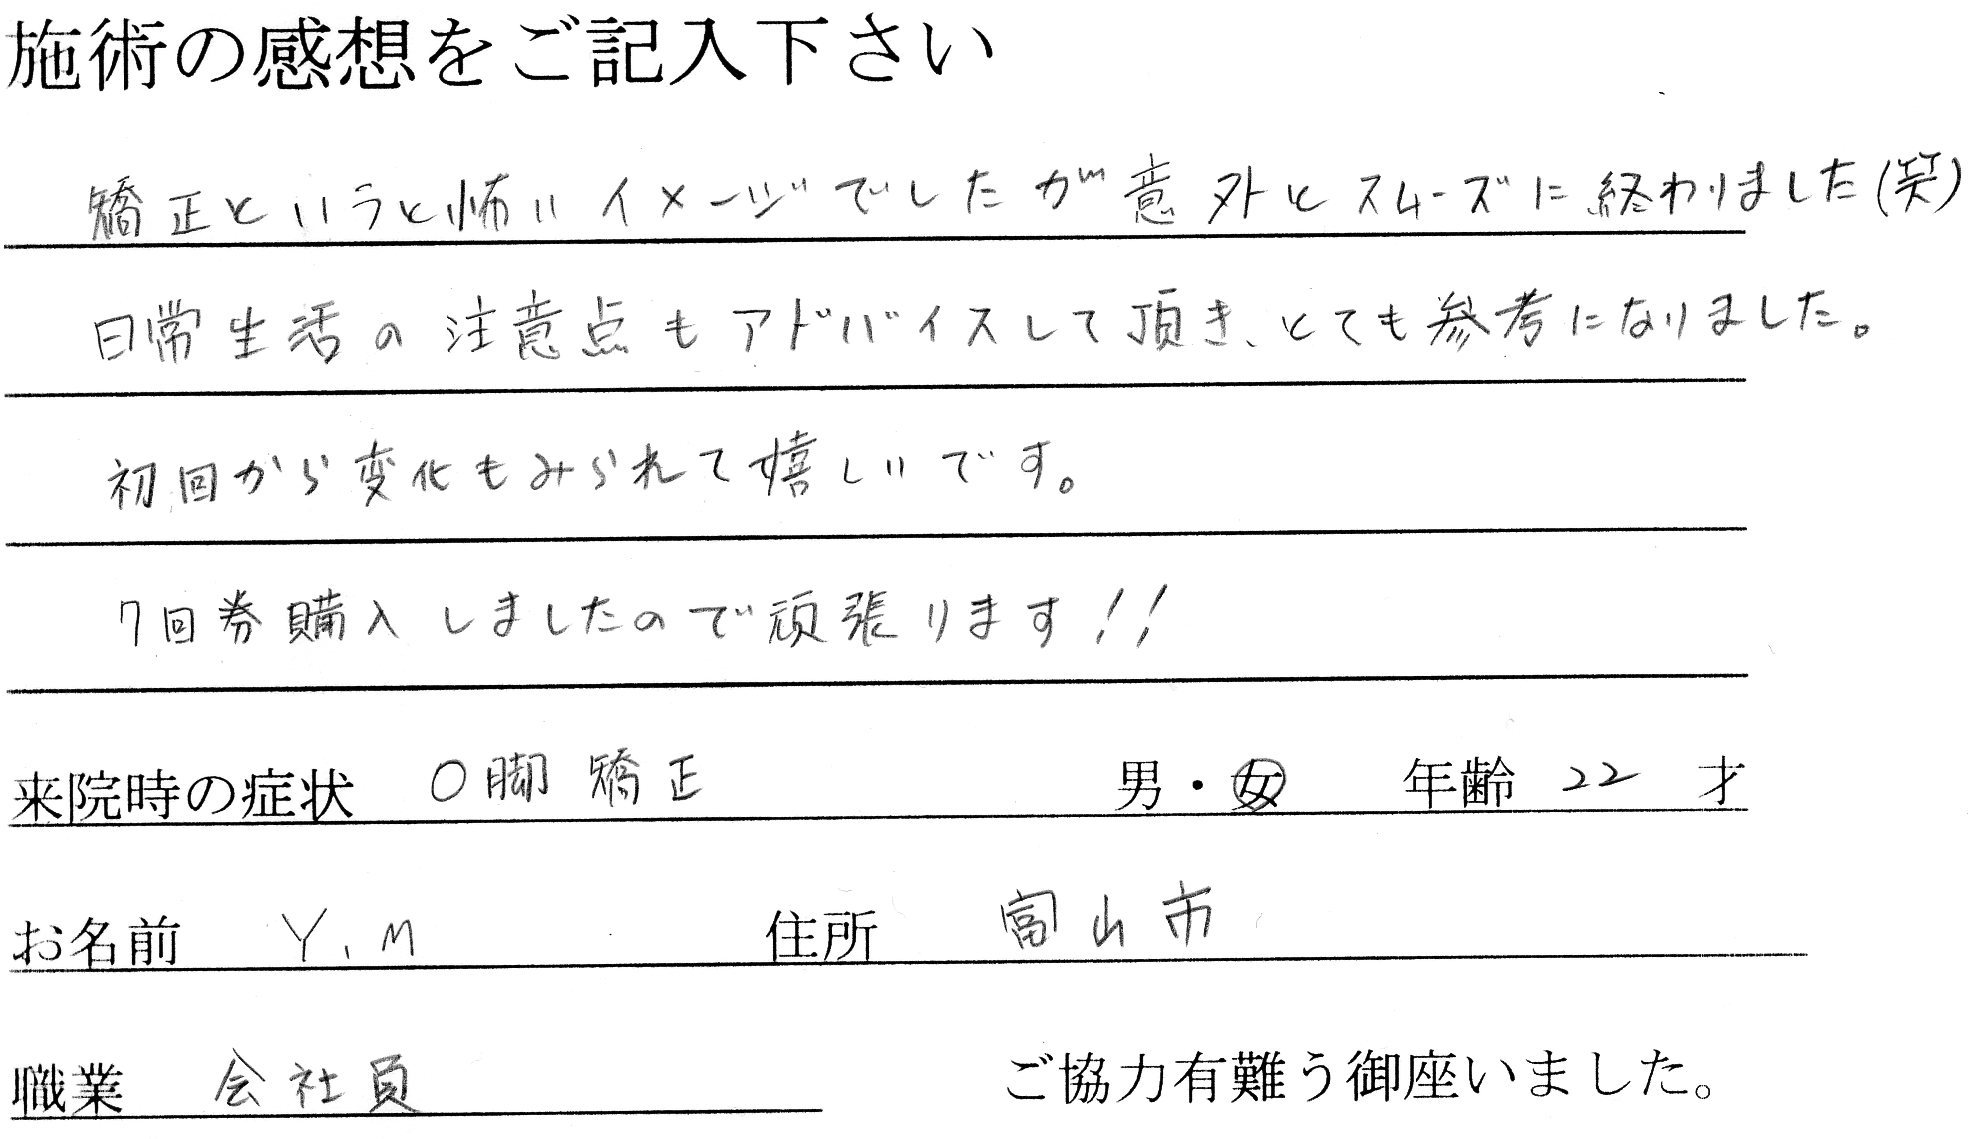 施術の感想をご記入下さい
矯正というと怖いイメージでしたが意外とスムーズに終わりました(笑)
日常生活の注意点もアドバイスして頂き、とても参考になりました。
初回から変化もみられて嬉しいです。
7回券購入しましたので頑張ります!!
来院時の症状 O脚矯正 男・女 年齢 22 才
お名前 Y.M 住所 富山市
職業 会社員 ご協力有難う御座いました。